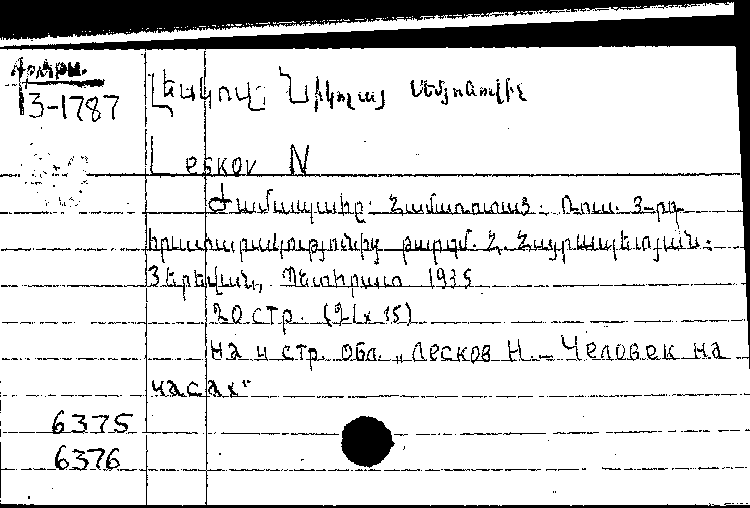 Արմրա.
13-1787
Լեսկով, Նիկոլայ Սեմյոնովիչ
Leskov N
Ժամապահը: Համառոտած. Ռուս. 3-րդ
հրատարակությունից թարգմ. Հ. Հայրապետյան:
Յերեվան, Պետհրատ 1935
20 стр. (21x15)
На 4 стр. обл. „Лесков Н. – Человек на
часах"
6375
6376